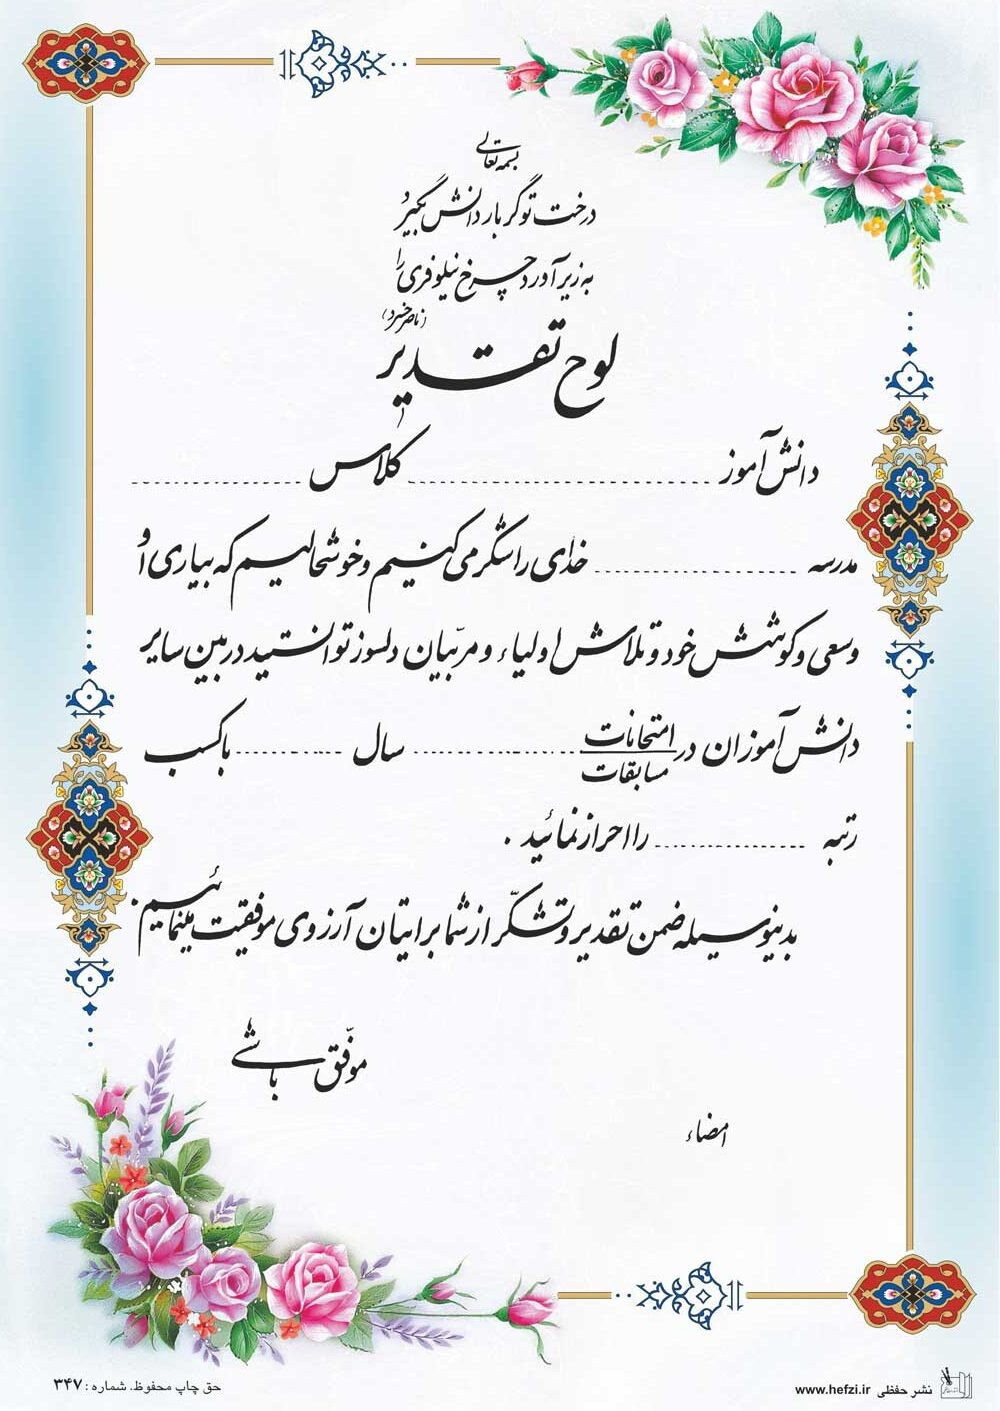 بسمه تعالی
درخت تو گر بار دانش بگیرد
به زیر آورد چرخ نیلوفری را
(ناصر خسرو)
لوح تقدیر
دانش آموز .......................... کلاس ..................
مدرسه ...................... خدای را شکر می کنیم و خوشحالیم که بیاری او
وسعی و کوشش خود و تلاش اولیاء و مربّیان دلسوز توانستید در بین سایر
دانش آموزان در امتحانات .................. سال ............ باکسب
مسابقات
رتبه ................ را احراز نمائید .
بدینوسیله ضمن تقدیر و تشکّر از شما برایتان آرزوی موفقیت مینمائیم.
موفّق باشی
امضاء
نشر حفظی www.hefzi.ir
حق چاپ محفوظ، شماره : ۳۴۷